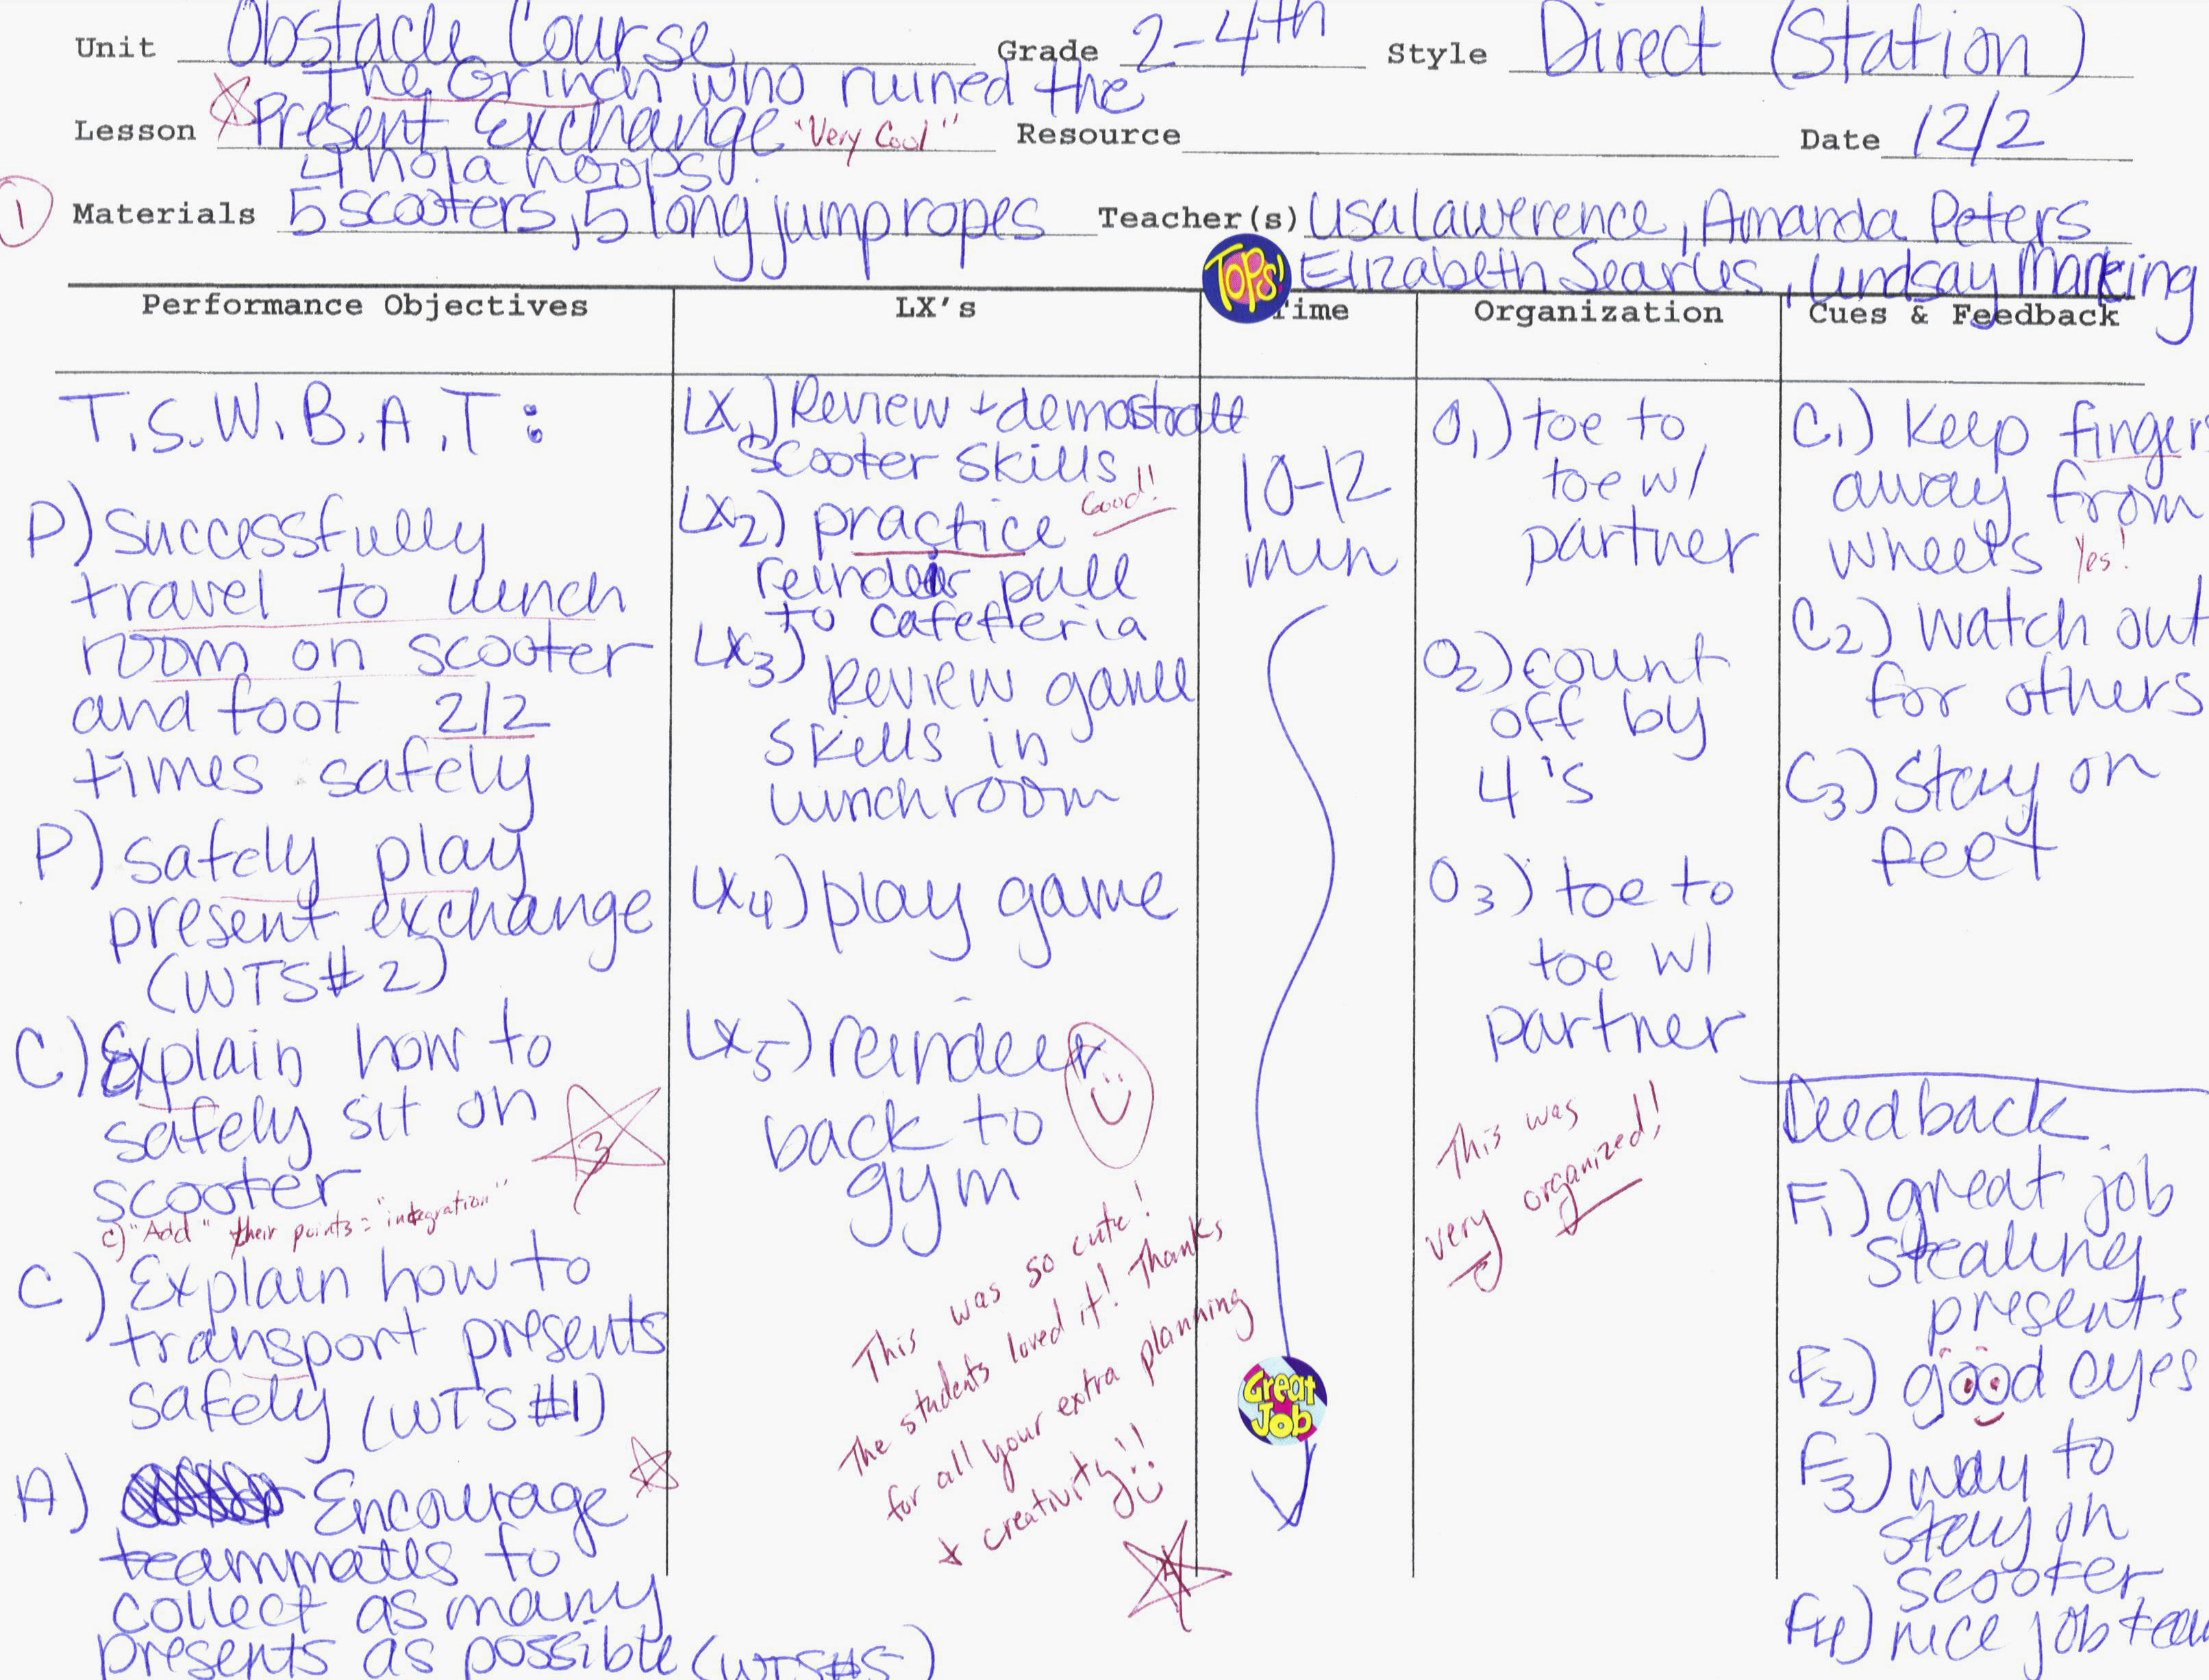 Unit Obstacle Course Grade 2-4th Style Direct (Station)
The Grinch who ruined the
Lesson Present Exchange "Very Cool" Resource Date 12/2
4 hola hoops
1 Materials 5 scooters, 5 long jump ropes Teacher(s) Lisa Lawerence, Amanda Peters
TOPS! Elizabeth Searles, Lindsay Manking
Performance Objectives
T.S.W.B.A.T:
P) successfully
travel to lunch
room on scooter
and foot 2/2
times safely
P) safely play
present exchange
(WTS#2)
C) Explain how to
safely sit on
scooter
3
c) "Add" their points = "integration"
C) Explain how to
transport presents
safely (WTS#1)
A) Encourage
teammates to
collect as many
presents as possible (WTS#5)
LX's
LX1) Review + demostrate
scooter skills
LX2) practice Good!!
reindeer pull
to cafeteria
LX3)
Review game
skills in
lunchroom
LX4) play game
LX5) reindeer
back to
gym
This was so cute!
The students loved it! Thanks
for all your extra planning
+ creativity!!
A
Time
10-12
min
Great
Job
Organization
O1) toe to
toe w/
partner
O2) count
off by
4's
O3) toe to
toe w/
partner
This was
very organized!
Cues & Feedback
C1) Keep fingers
away from
wheels Yes!
C2) watch out
for others
C3) Stay on
feet
Feedback
F1) great job
stealing
presents
F2) good eyes
F3) way to
stay on
scooter
F4) nice job team